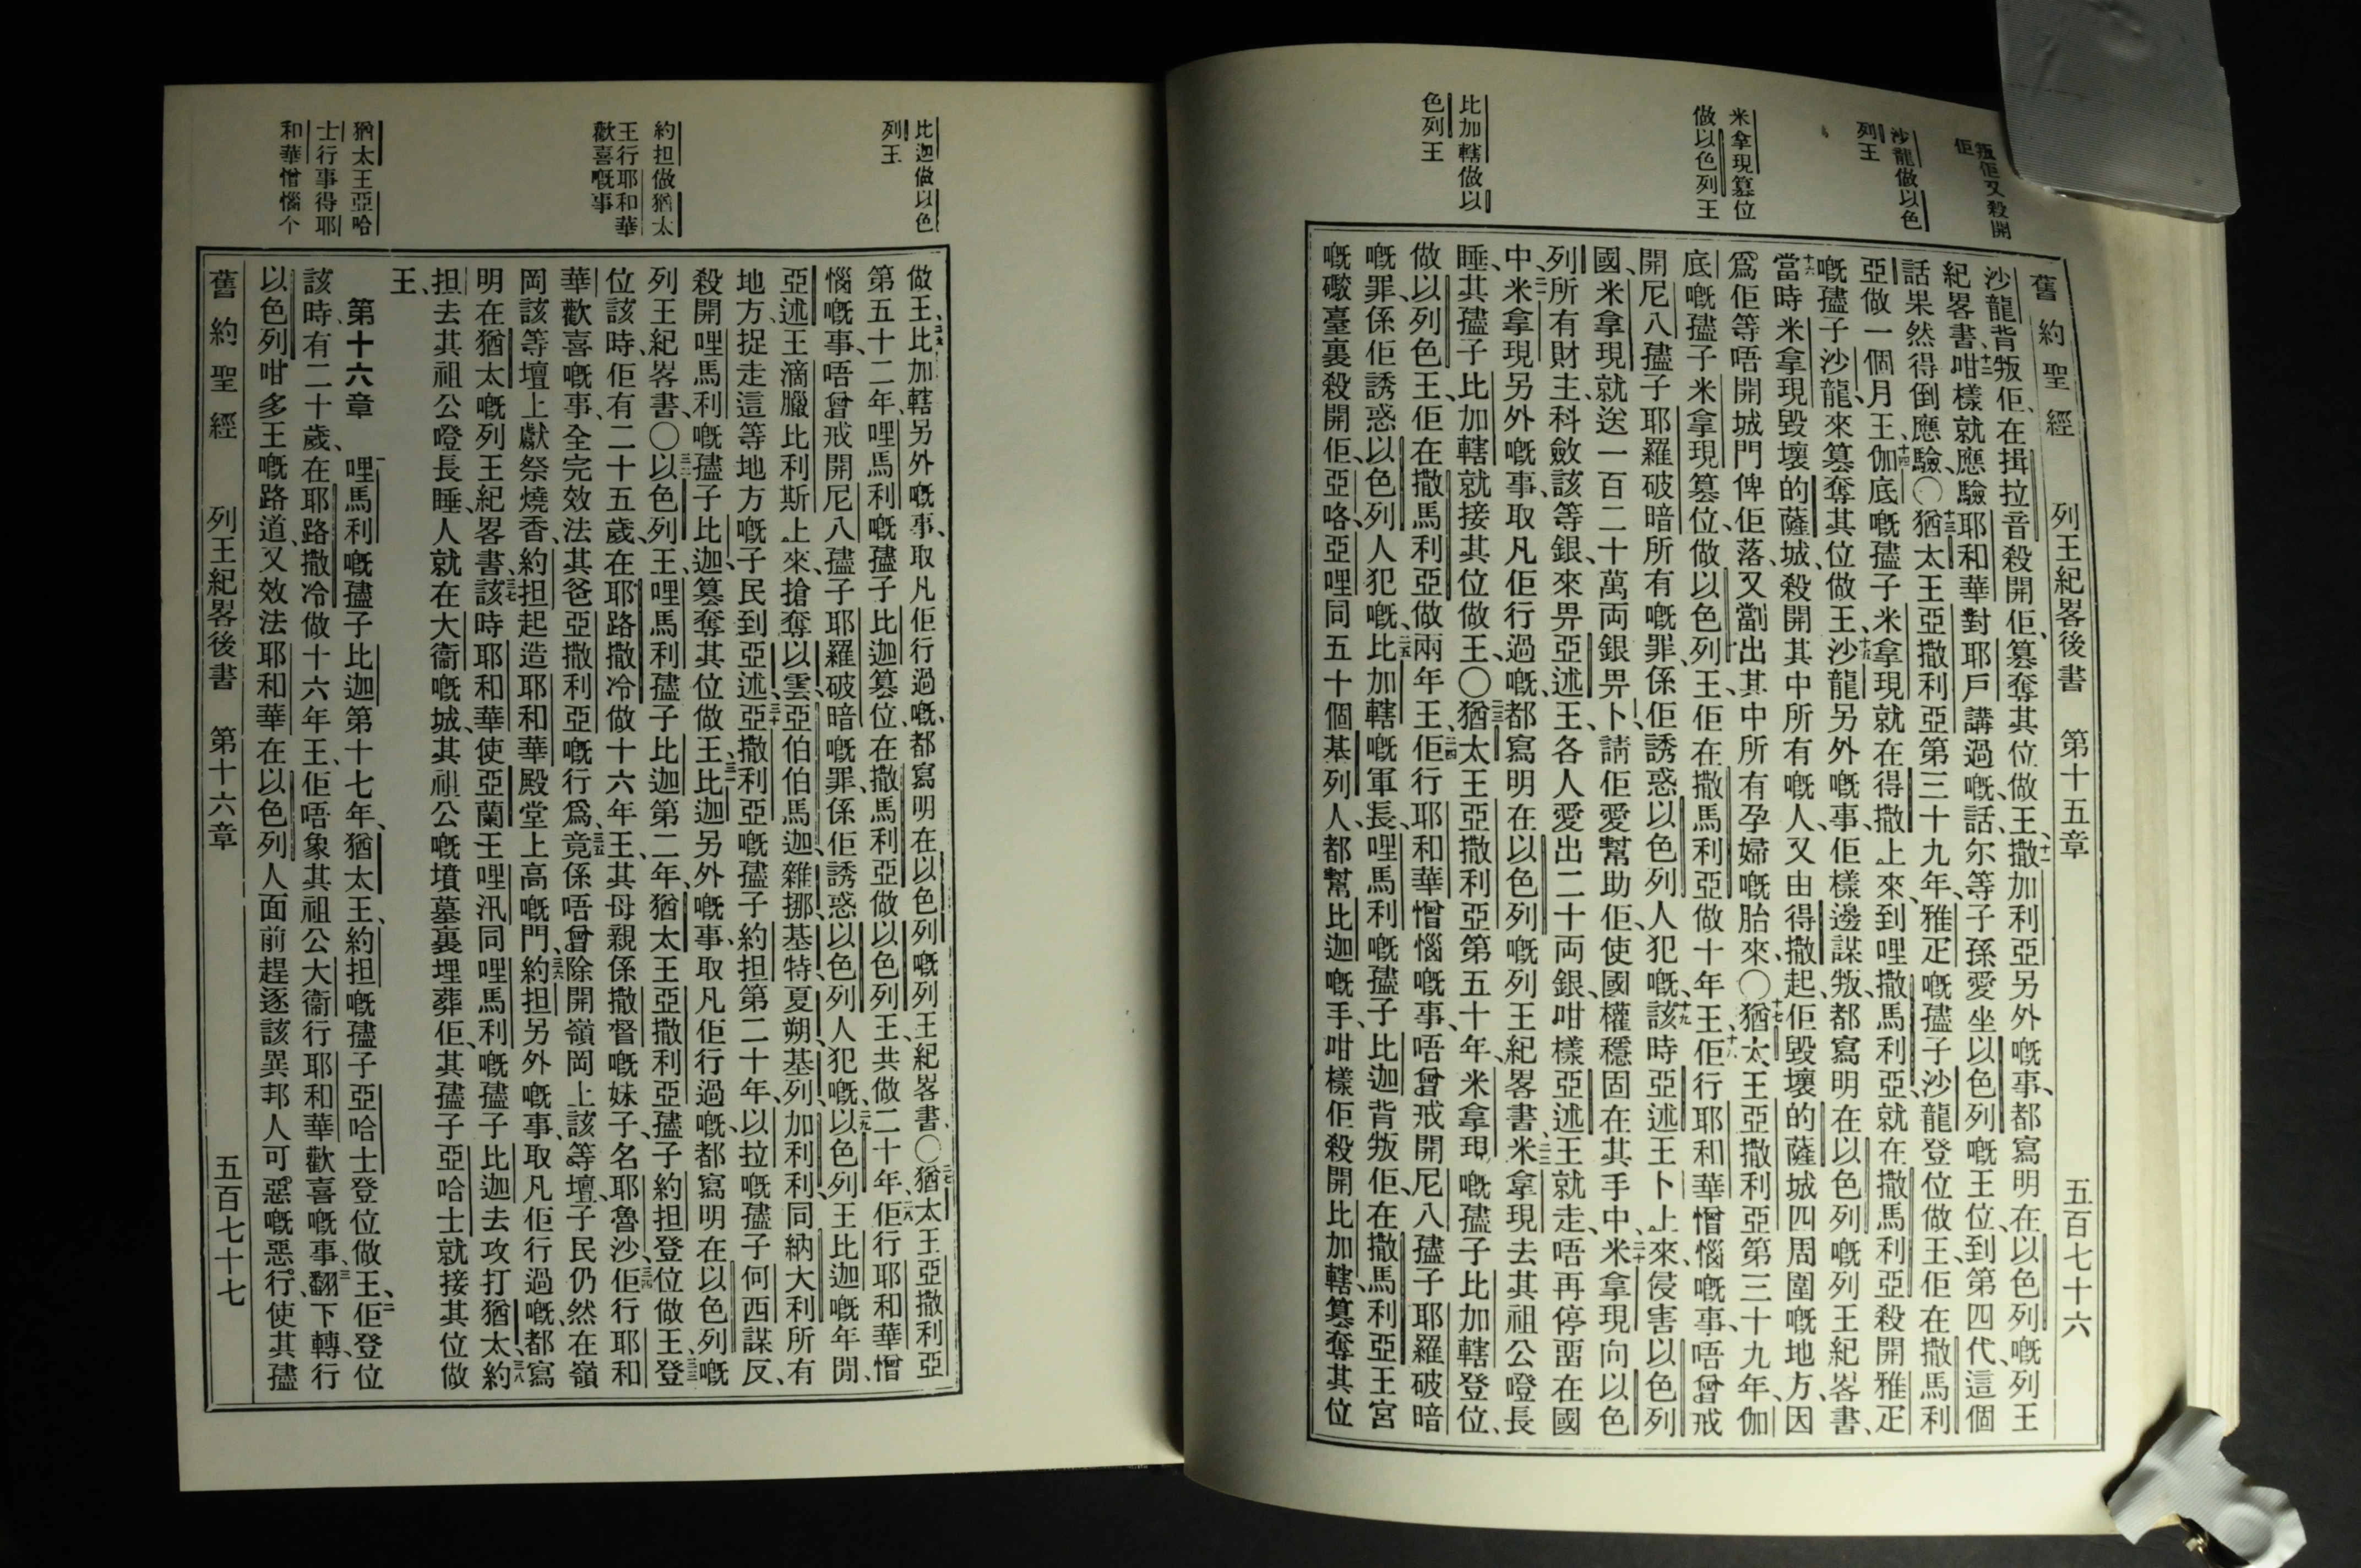 叛佢又殺開
佢
沙龍做以色
列王
米拿現篡位
做以色列王
比加轄做以
色列王
舊約聖經 列王紀畧後書 第十五章 五百七十六
沙龍背叛佢、在揖拉音殺開佢、篡奪其位做王、十一撒加利亞另外嘅事、都寫明在以色列嘅列王
紀畧書、十二咁樣就應驗耶和華對耶戶講過嘅話、尔等子孫愛坐以色列嘅王位、到第四代、這個
話果然得倒應驗、〇十三猶太王亞撒利亞第三十九年、雅疋嘅孻子沙龍登位做王、佢在撒馬利
亞做一個月王、十四伽底嘅孻子米拿現就在得撒上來、到哩撒馬利亞、就在撒馬利亞殺開雅疋
嘅孻子沙龍、來篡奪其位做王、十五沙龍另外嘅事、佢樣邊謀叛、都寫明在以色列嘅列王紀畧書、
十六當時米拿現毀壞的薩城、殺開其中所有嘅人、又由得撒起、佢毀壞的薩城四周圍嘅地方、因
爲佢等唔開城門俾佢落、又劏出其中所有孕婦嘅胎來、〇十七猶太王亞撒利亞第三十九年、伽
底嘅孻子米拿現篡位、做以色列王、佢在撒馬利亞做十年王、十八佢行耶和華憎惱嘅事、唔曾戒
開尼八孻子耶羅破暗所有嘅罪、係佢誘惑以色列人犯嘅、十九該時亞述王卜上來、侵害以色列
國、米拿現就送一百二十萬両銀畀卜、請佢愛幫助佢、使國權穩固在其手中、二十米拿現向以色
列所有財主、科斂該等銀、來畀亞述王、各人愛出二十両銀、咁樣亞述王就走、唔再停畱在國
中、二一米拿現另外嘅事、取凡佢行過嘅、都寫明在以色列嘅列王紀畧書、二二米拿現去其祖公噔長
睡、其孻子比加轄就接其位做王、〇二三猶太王亞撒利亞第五十年、米拿現嘅孻子比加轄登位、
做以列色王、佢在撒馬利亞做兩年王、二四佢行耶和華憎惱嘅事、唔曾戒開尼八孻子耶羅破暗
嘅罪、係佢誘惑以色列人犯嘅、二五比加轄嘅軍長、哩馬利嘅孻子比迦背叛佢、在撒馬利亞王宮
嘅礮臺裏殺開佢、亞咯、亞哩同五十個基列人、都幫比迦嘅手、咁樣佢殺開比加轄、篡奪其位
比迦做以色
列王
約担做猶太
王行耶和華
歡喜嘅事
猶太王亞哈
士行事得耶
和華憎惱个
做王、二六比加轄另外嘅事、取凡佢行過嘅、都寫明在以色列嘅列王紀畧書、〇二七猶太王亞撒利亞
第五十二年、哩馬利嘅孻子比迦篡位、在撒馬利亞做以色列王、共做二十年、二八佢行耶和華憎
惱嘅事、唔曾戒開尼八孻子耶羅破暗嘅罪、係佢誘惑以色列人犯嘅、二九以色列王比迦嘅年間、
亞述王滴臘比利斯上來、搶奪以雲、亞伯伯馬迦、雜挪、基特、夏朔、基列、加利利、同納大利所有
地方、捉走這等地方嘅子民到亞述、三十亞撒利亞嘅孻子約担第二十年、以拉嘅孻子何西謀反、
殺開哩馬利嘅孻子比迦、篡奪其位做王、三一比迦另外嘅事、取凡佢行過嘅、都寫明在以色列嘅
列王紀畧書、〇三二以色列王、哩馬利孻子比迦第二年、猶太王亞撒利亞孻子約担登位做王、三三登
位該時、佢有二十五歲、在耶路撒冷做十六年王、其母親係撒督嘅妹子、名耶魯沙、三四佢行耶和
華歡喜嘅事、全完效法其爸亞撒利亞嘅行爲、三五竟係唔曾除開嶺岡上該等壇、子民仍然在嶺
岡該等壇上獻祭燒香、約担起造耶和華殿堂上高嘅門、三六約担另外嘅事、取凡佢行過嘅、都寫
明在猶太嘅列王紀畧書、三七該時耶和華使亞蘭王哩汛同哩馬利嘅孻子比迦去攻打猶太、三八約
担去其祖公噔長睡、人就在大衞嘅城、其祖公嘅墳墓裏埋葬佢、其孻子亞哈士就接其位做
王、
第十六章 一哩馬利嘅孻子比迦第十七年、猶太王、約担嘅孻子亞哈士登位做王、二佢登位
該時、有二十歲、在耶路撒冷做十六年王、佢唔象其祖公大衞行耶和華歡喜嘅事、三翻下轉、行
以色列咁多王嘅路道、又效法耶和華在以色列人面前趕逐該異邦人可惡嘅惡行、使其孻
舊約聖經 列王紀畧後書 第十六章 五百七十七